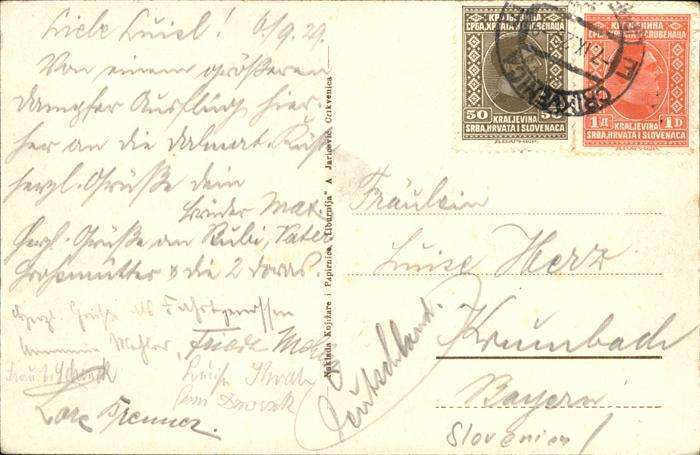 Liebe Luisl! 6/9.29.
Von einem größeren
Dampfer Ausflug hier-
her an die dalmat. Küste
herzl. Grüße dein
Bruder Max.
Herzl. Grüße an Rubi, Vater
Großmutter & die 2 Doras.
Herzl. Grüße als Fahrtgenossen
Mahler,
Frau
Luise
Lore Brenner.
Nakłada Knjižare i Papirnice "Liburnija" A Jaričević, Crikvenica
КРАЉЕВИНА
СРБА, ХРВАТА И СЛОВЕНАЦА
50 50
KRALJEVINA
SRBA, HRVATA I SLOVENACA
КРАЉЕВИНА
СРБА, ХРВАТА И СЛОВЕНАЦА
1Д 1D
KRALJEVINA
SRBA, HRVATA I SLOVENACA
CRIKVENICA
Fräulein
Luise Herz
Krumbach
Bayern
Deutschland.
Slovenien